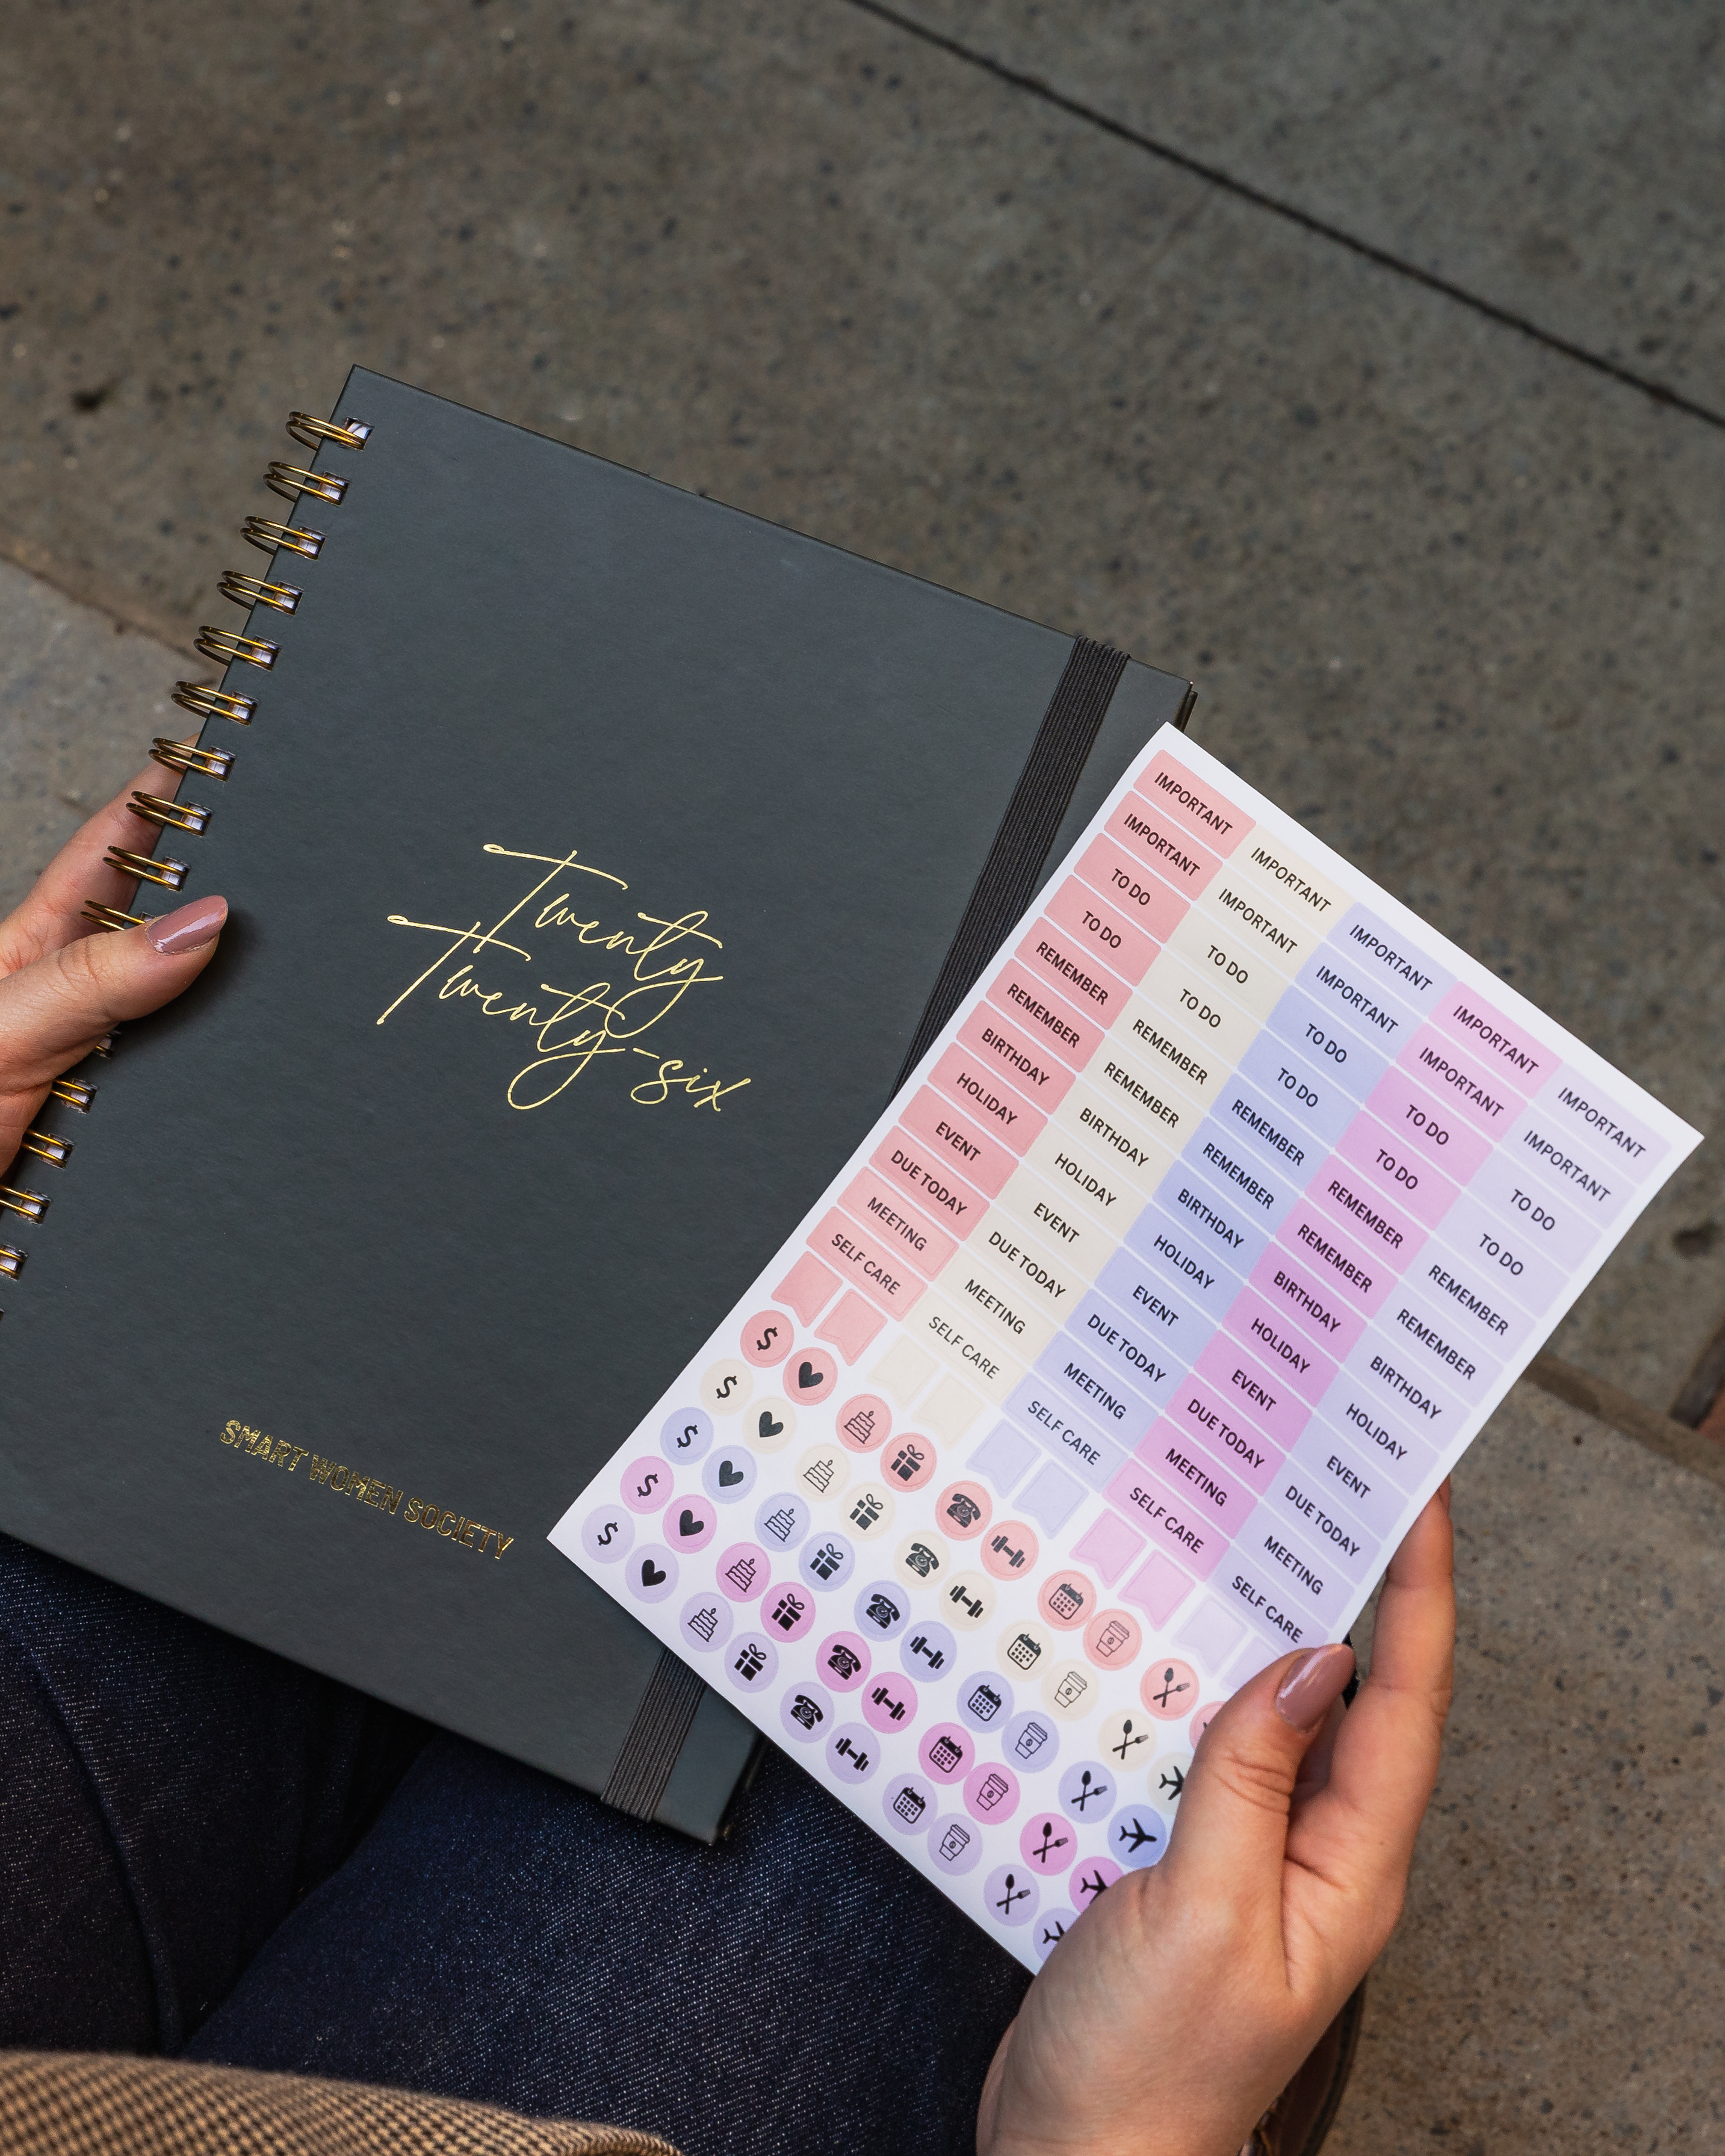 Twenty
Twenty-six
SMART WOMEN SOCIETY
IMPORTANT
IMPORTANT
TO DO
TO DO
REMEMBER
REMEMBER
BIRTHDAY
HOLIDAY
EVENT
DUE TODAY
MEETING
SELF CARE
IMPORTANT
IMPORTANT
TO DO
TO DO
REMEMBER
REMEMBER
BIRTHDAY
HOLIDAY
EVENT
DUE TODAY
MEETING
SELF CARE
IMPORTANT
IMPORTANT
TO DO
TO DO
REMEMBER
REMEMBER
BIRTHDAY
HOLIDAY
EVENT
DUE TODAY
MEETING
SELF CARE
IMPORTANT
IMPORTANT
TO DO
TO DO
REMEMBER
REMEMBER
BIRTHDAY
HOLIDAY
EVENT
DUE TODAY
MEETING
SELF CARE
IMPORTANT
IMPORTANT
TO DO
TO DO
REMEMBER
REMEMBER
BIRTHDAY
HOLIDAY
EVENT
DUE TODAY
MEETING
SELF CARE
$
$
$
$
$